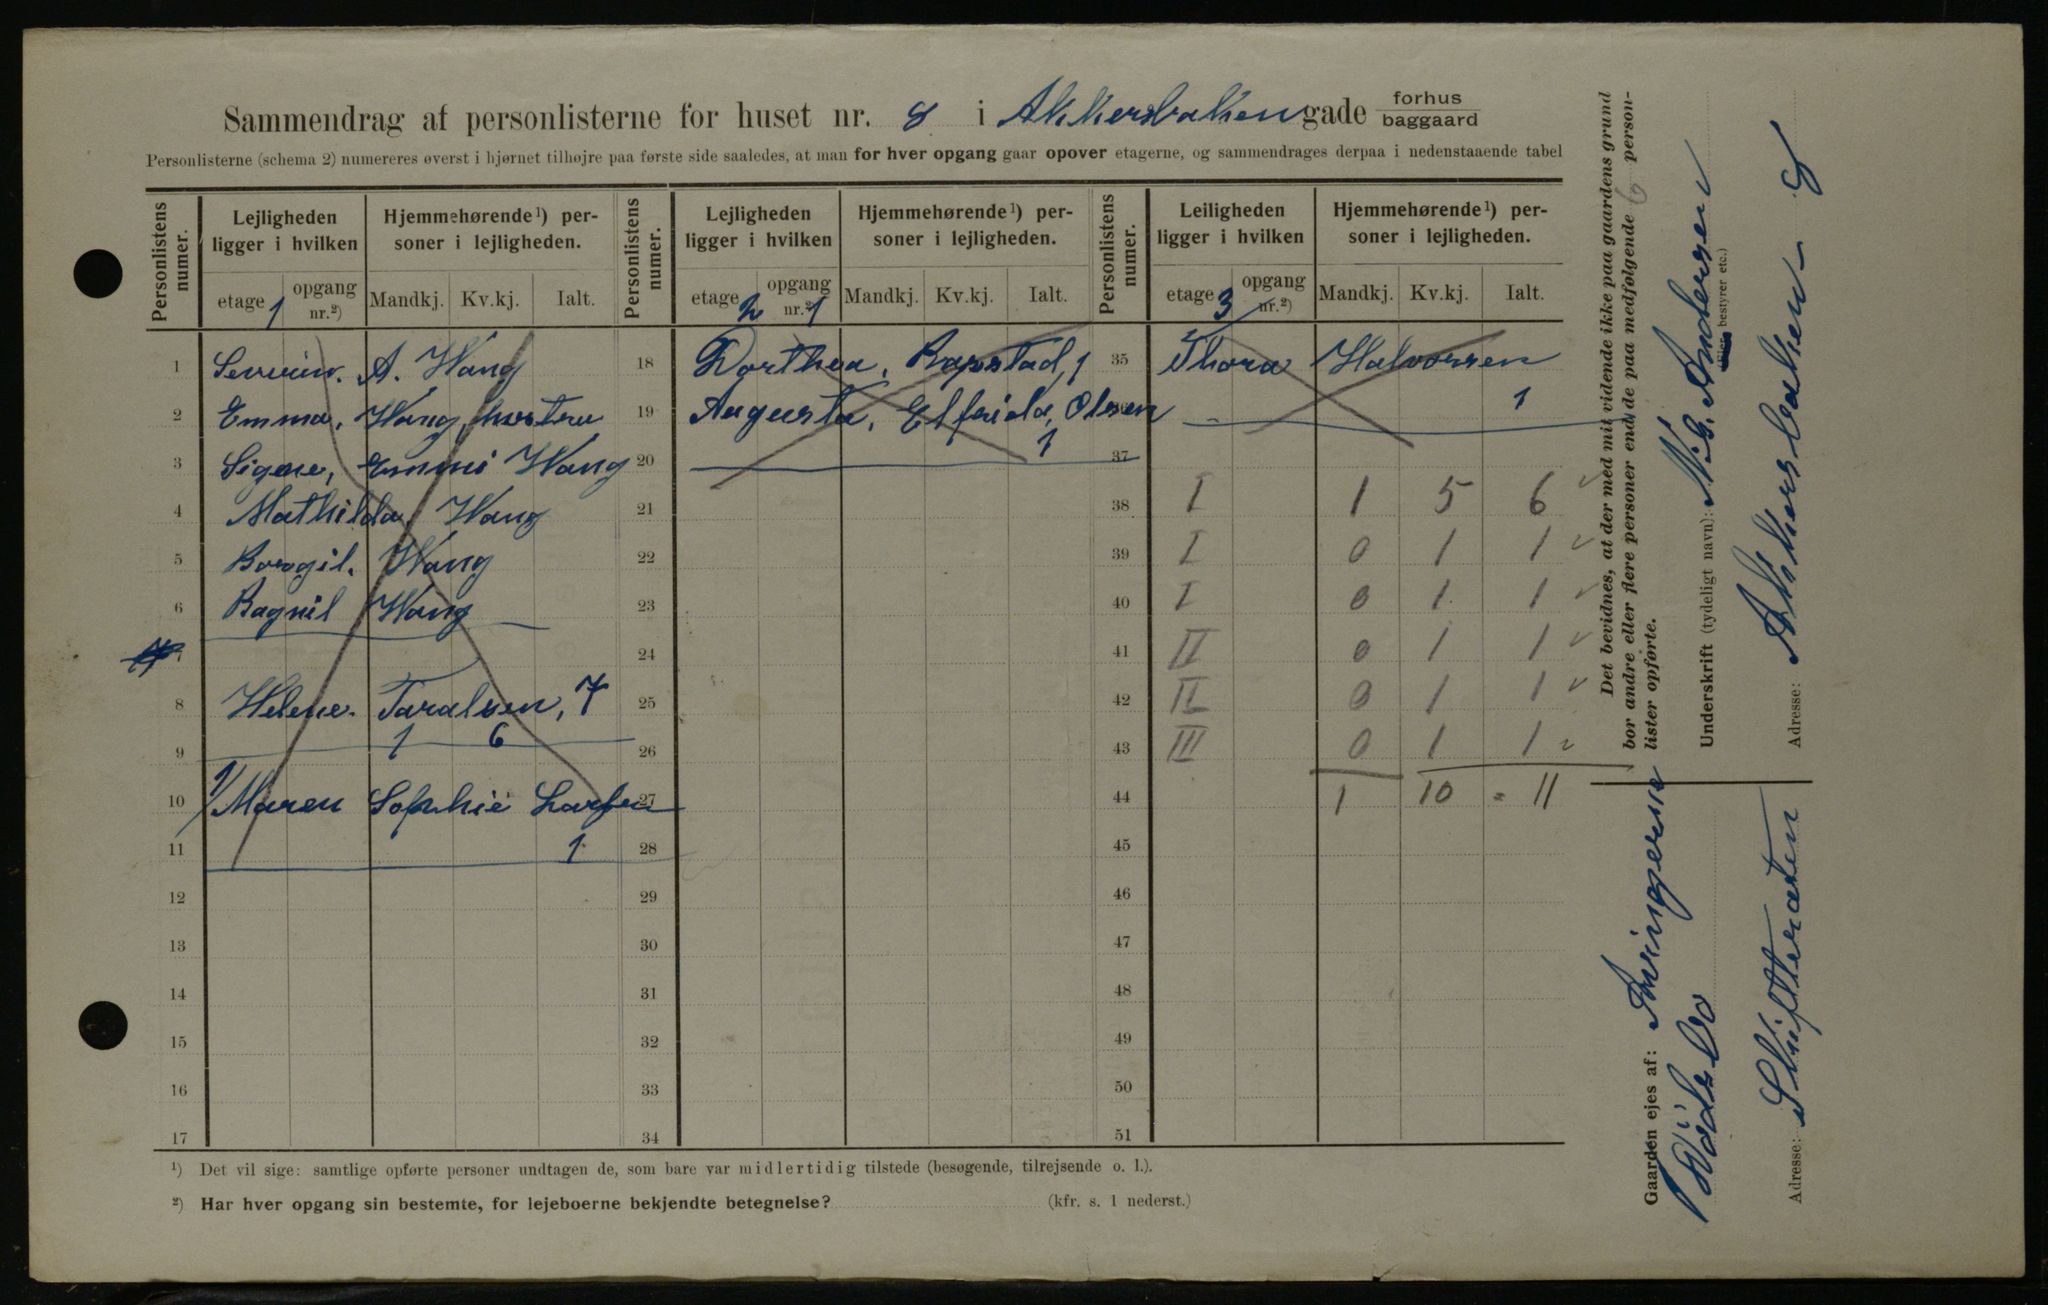 Sammendrag af personlisterne for huset nr. 8 i Akkersbakken gade forhus baggaard
Personlisterne (schema 2) numereres øverst i hjørnet tilhøjre paa første side saaledes, at man for hver opgang gaar opover etagerne, og sammendrages derpaa i nedenstaaende tabel
Personlistens numer.
Lejligheden ligger i hvilken
Hjemmehørende¹) personer i lejligheden.
etage 1
opgang nr.²)
Mandkj.
Kv.kj.
Ialt.
1 Severin. A. Wang
2 Emma, Wang, hustru
3 Signe, Emmi Wang
4 Mathilda, Wang
5 Borgil. Wang
6 Ragnil Wang
7
8 Helene. Taralsen, 7
9 1 6
10 1/ Maren Sophie Larsen
11 1
12
13
14
15
16
17
Personlistens numer.
Lejligheden ligger i hvilken
Hjemmehørende¹) personer i lejligheden.
etage 2
opgang nr.²) 1
Mandkj.
Kv.kj.
Ialt.
18 Dorthea, Rapstad, 1
19 Augusta, Elfrida, Olsen
20 1
21
22
23
24
25
26
27
28
29
30
31
32
33
34
Personlistens numer.
Leiligheden ligger i hvilken
Hjemmehørende¹) personer i lejligheden.
etage 3
opgang nr.²)
Mandkj.
Kv.kj.
Ialt.
35 Thora Halvorsen
1
37
38 I 1 5 6
39 I 0 1 1
40 I 0 1 1
41 II 0 1 1
42 II 0 1 1
43 III 0 1 1
44 1 10 = 11
45
46
47
48
49
50
51
¹) Det vil sige: samtlige opførte personer undtagen de, som bare var midlertidig tilstede (besøgende, tilrejsende o. l.).
²) Har hver opgang sin bestemte, for lejeboerne bekjendte betegnelse? (kfr. s. 1 nederst.)
Det bevidnes, at der med mit vidende ikke paa gaardens grund
bor andre eller flere personer end de paa medfølgende 6 person-
lister opførte.
Underskrift (tydeligt navn): N. G. Andersen
(Eier, bestyrer etc.)
Adresse: Akkersbakken 8
Gaarden ejes af:
Adresse: